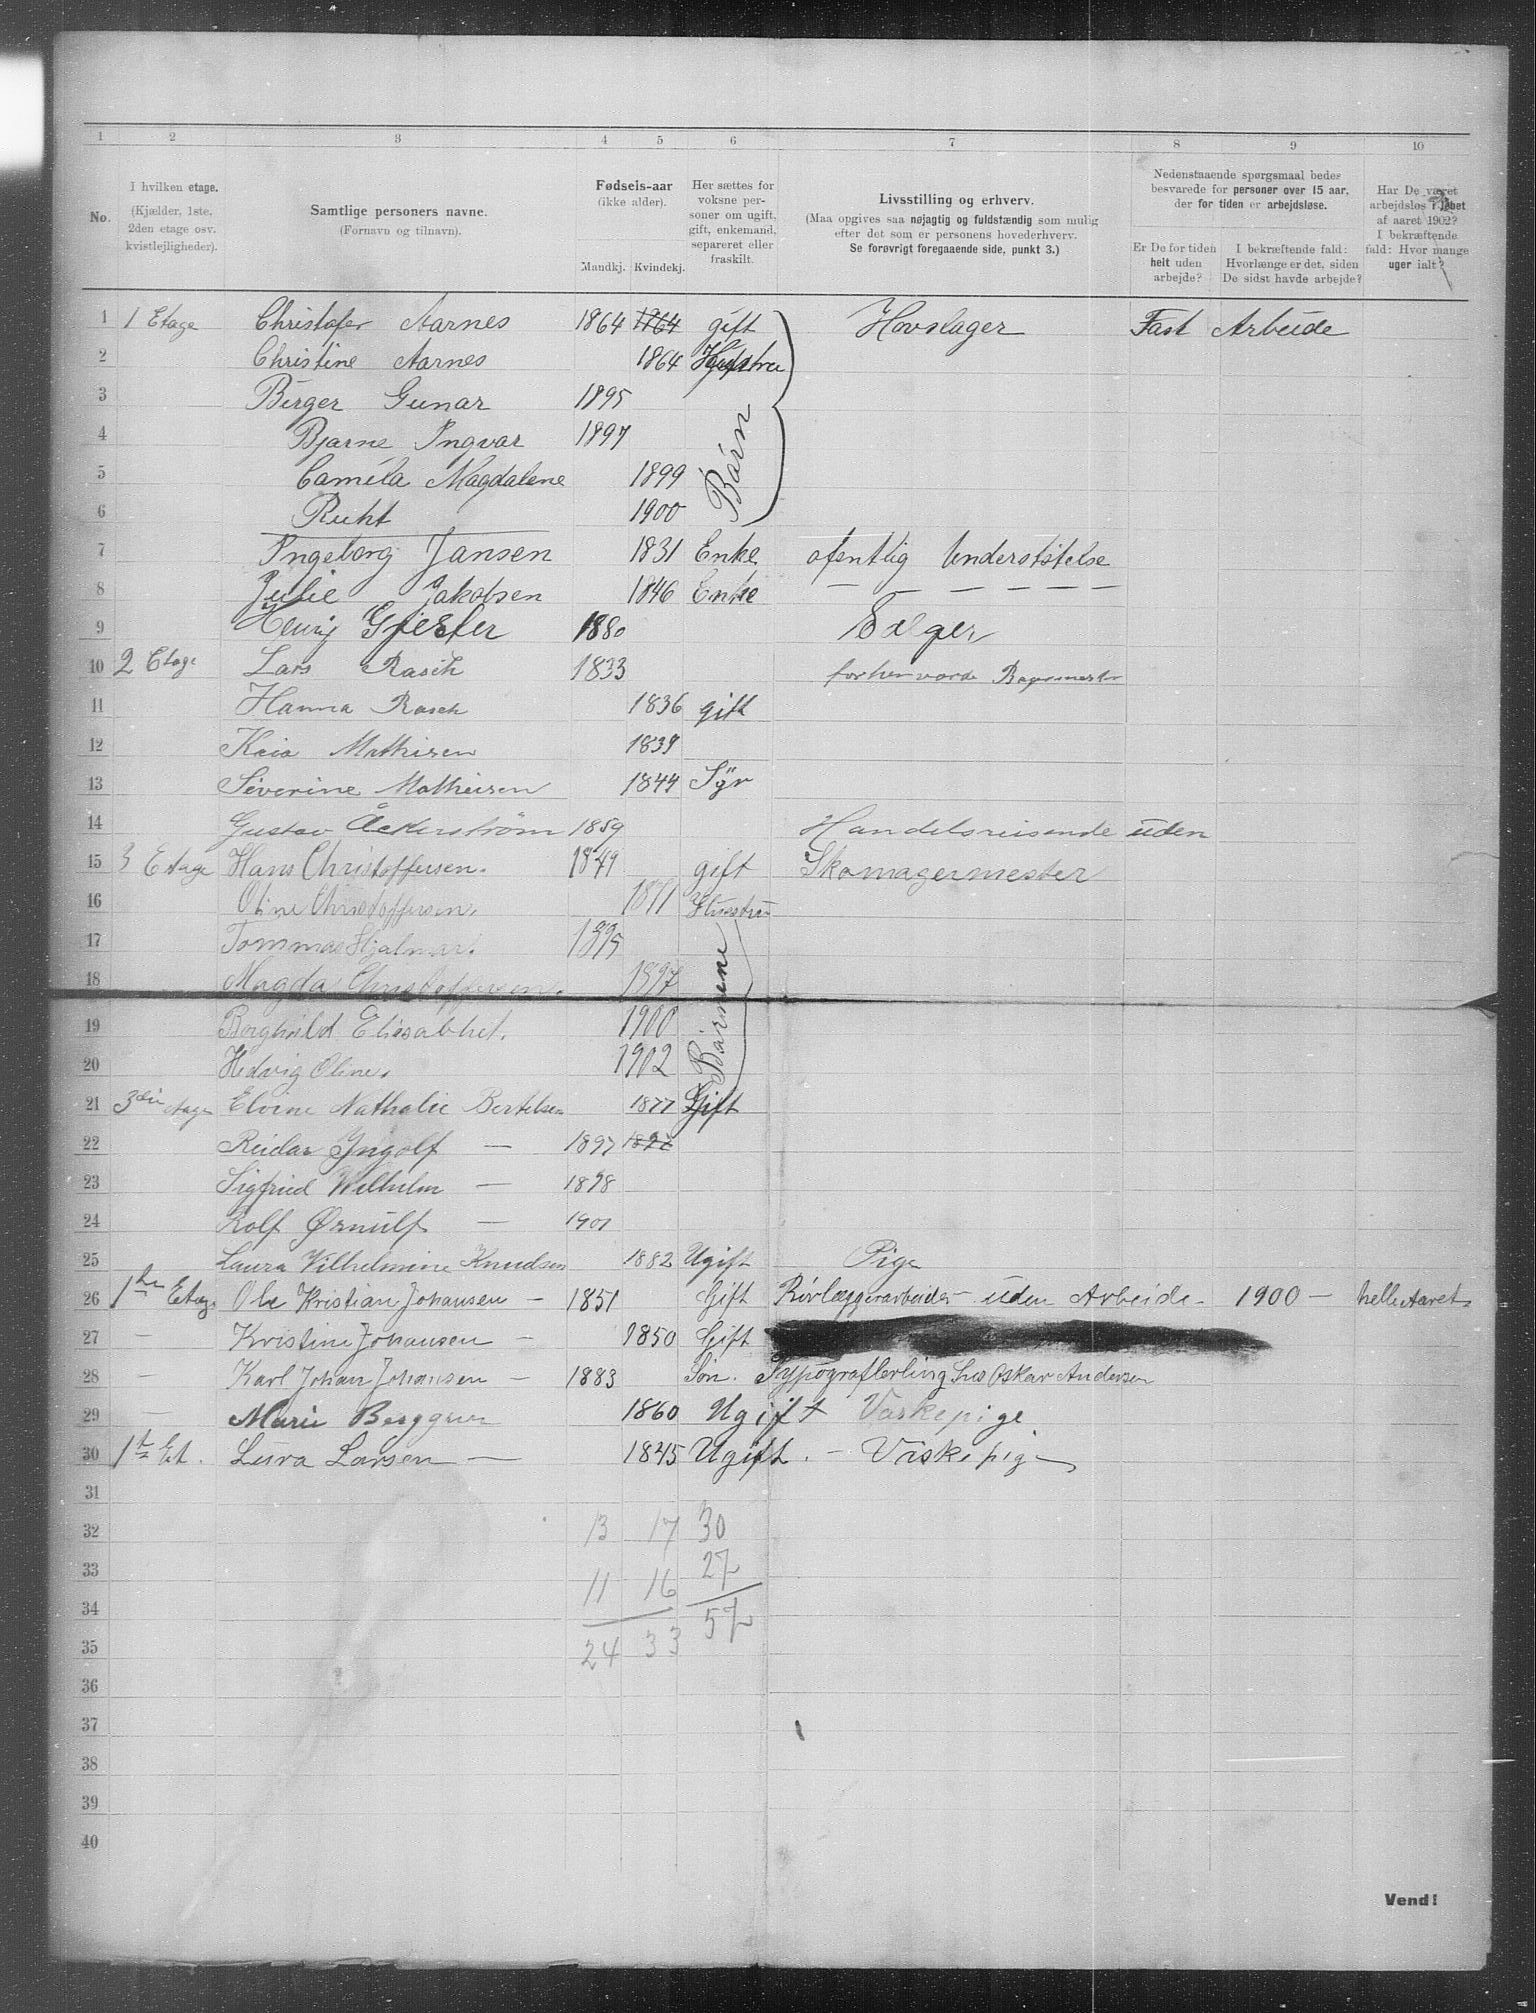 1 2 3 4 5 6 7 8 9 10
No.
I hvilken etage.
(Kjælder, 1ste,
2den etage osv.
kvistlejligheder).
Samtlige personers navne.
(Fornavn og tilnavn).
Fødsels-aar
(ikke alder).
Mandkj. Kvindekj.
Her sættes for
voksne per-
soner om ugift,
gift, enkemand,
separeret eller
fraskilt.
Livsstilling og erhverv.
(Maa opgives saa nøjagtig og fuldstændig som mulig
efter det som er personens hovederhverv.
Se forøvrigt foregaaende side, punkt 3.)
Nedenstaaende spørgsmaal bedes
besvarede for personer over 15 aar,
der for tiden er arbejdsløse.
Er De for tiden
helt uden
arbejde?
I bekræftende fald:
Hvorlænge er det, siden
De sidst havde arbejde?
Har De været
arbejdsløs i løbet
af aaret 1902?
I bekræftende
fald: Hvor mange
uger ialt?
1 1 Etage Christofer Aarnes 1864 1864 gift Hovslager Fast Arbeide
2 Christine Aarnes 1864 Hustru
3 Birger Gunar 1895
4 Bjarne Ingvar 1897 Børn
5 Camila Magdalene 1899
6 Ruht 1900
7 Ingeborg Jansen 1831 Enke ofentlig Understøtelse
8 Julie Jakobsen 1846 Enke — — — — —
9 Henrij 1880 Sælger
10 2 Etage Lars Rasch 1833 forhenværde Bagermester
11 Hanna Rasch 1836 gift
12 Kaia Mathisen 1839
13 Severine Matheisen 1844 Syr
14 Gustav Åckerstrøm 1859 Handelsreisende uden
15 3 Etage Hans Christoffersen. 1849 gift Skomagermester
16 Oline Christoffersen. 1871 Hustru
17 Tommas Hjalmar. 1895
18 Magda Christoffersen. 1897 Børnene
19 Borghild Elisabhet. 1900
20 Hedvig Oline. 1902
21 3die etage Elvine Nathalie Bertelsen 1877 Gift
22 Reidar Ingolf — 1897
23 Sigfried Wilhelm — 1898
24 Rolf Ørnulf — 1901
25 Laura Vilhelmine Knudsen 1882 Ugift Pige
26 1ste Etage Ole Kristian Johansen — 1851 Gift Rørlæggerarbeider uden Arbeide — 1900 — helle Aaret
27 — Kristine Johansen — 1850 Gift
28 — Karl Johan Johansen — 1883 Søn. Typograflerling hos Oskar Andersen
29 — Marie Berggren 1860 Ugift Vaskepige
30 1ste Et. Lura Larsen — 1845 Ugift. — Vaskepige
31
32 13 17 30
33 11 16 27
34 57
35 24 33
36
37
38
39
40
Vend!